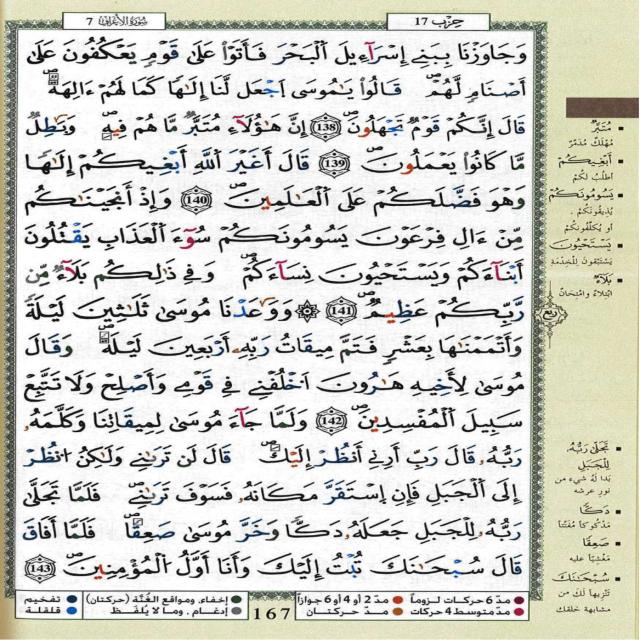 حِزْب 17
سُورَةُ الأَعْرَاف 7
وَجَاوَزْنَا بِبَنِي إِسْرَآءِيلَ اَلْبَحْرَ فَأَتَوْاْ عَلَىٰ قَوْمٍ يَعْكُفُونَ عَلَىٰ
أَصْنَامٍ لَّهُمْ قَالُواْ يَٰمُوسَى اَجْعَل لَّنَا إِلَٰهًا كَمَا لَهُمْ ءَالِهَةٌ
قَالَ إِنَّكُمْ قَوْمٌ تَجْهَلُونَ 138 إِنَّ هَٰؤُلَآءِ مُتَبَّرٌ مَّا هُمْ فِيهِ وَبَٰطِلٌ
مَّا كَانُواْ يَعْمَلُونَ 139 قَالَ أَغَيْرَ اَللَّهِ أَبْغِيكُمْ إِلَٰهًا
وَهُوَ فَضَّلَكُمْ عَلَى اَلْعَٰلَمِينَ 140 وَإِذْ أَنجَيْنَٰكُم
مِّنْ ءَالِ فِرْعَوْنَ يَسُومُونَكُمْ سُوٓءَ اَلْعَذَابِ يَقْتُلُونَ
أَبْنَآءَكُمْ وَيَسْتَحْيُونَ نِسَآءَكُمْ وَفِي ذَٰلِكُم بَلَآءٌ مِّن
رَّبِّكُمْ عَظِيمٌ 141 ۞ وَوَٰعَدْنَا مُوسَىٰ ثَلَٰثِينَ لَيْلَةً
وَأَتْمَمْنَٰهَا بِعَشْرٍ فَتَمَّ مِيقَٰتُ رَبِّهِۦ أَرْبَعِينَ لَيْلَةً وَقَالَ
مُوسَىٰ لِأَخِيهِ هَٰرُونَ اَخْلُفْنِي فِي قَوْمِي وَأَصْلِحْ وَلَا تَتَّبِعْ
سَبِيلَ اَلْمُفْسِدِينَ 142 وَلَمَّا جَآءَ مُوسَىٰ لِمِيقَٰتِنَا وَكَلَّمَهُۥ
رَبُّهُۥ قَالَ رَبِّ أَرِنِي أَنظُرْ إِلَيْكَ قَالَ لَن تَرَىٰنِي وَلَٰكُنُ اُنظُرْ
إِلَى اَلْجَبَلِ فَإِنِ اِسْتَقَرَّ مَكَانَهُۥ فَسَوْفَ تَرَىٰنِي فَلَمَّا تَجَلَّىٰ
رَبُّهُۥ لِلْجَبَلِ جَعَلَهُۥ دَكًّا وَخَرَّ مُوسَىٰ صَعِقًا فَلَمَّا أَفَاقَ
قَالَ سُبْحَٰنَكَ تُبْتُ إِلَيْكَ وَأَنَا أَوَّلُ اُلْمُؤْمِنِينَ 143
مُتَبَّرٌ
مُهْلَكٌ مُدَمَّرٌ
أَبْغِيكُمْ
أَطْلُبُ لَكُمْ
يَسُومُونَكُمْ
يُذِيقُونَكُمْ
أو يُكَلِّفُونَكُمْ
يَسْتَحْيُونَ
يَسْتَبْقُونَ لِلْخِدْمَةِ
بَلَآءٌ
ابْتِلَاءٌ وامْتِحَانٌ
رُبْع
تَجَلَّىٰ رَبُّهُۥ
لِلْجَبَلِ
بَدَا لَهُ شَيْء من
نورِ عرشه
دَكًّا
مَدْكُوكًا مُفَتَّتًا
صَعِقًا
مَغْشِيًّا عليه
سُبْحَٰنَكَ
تَنْزِيهًا لَكَ من
مشابهة خلقك
مدّ 6 حركات لزوماً مدّ 2 أو 4 أو 6 جوازاً
مدّ متوسط 4 حركات مدّ حركتان
167
إخفاء، ومواقع الغُنَّة (حركتان) تفخيم
إدغام، وما لا يُلفَظ قلقلة